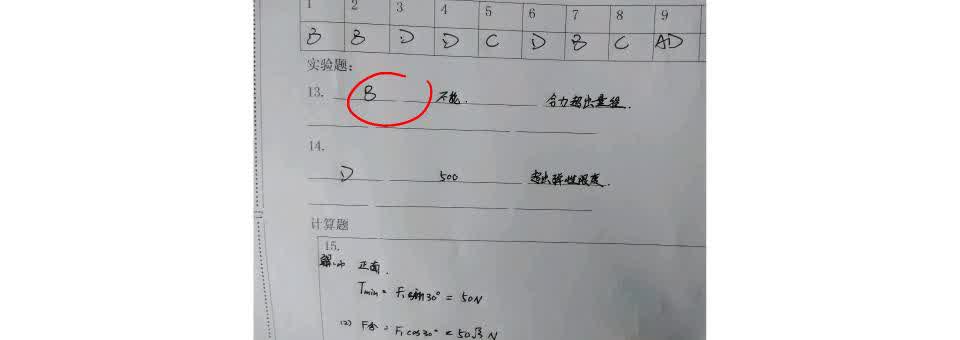 1 2 3 4 5 6 7 8 9
B B D D C D B C AD
实验题:
13. B 不能. 合力超出量程.
14.
D 500 超出弹性限度.
计算题
15.
解:(1) 正面.
Tmin = F₁sin30° = 50N
(2) F合 = F₁cos30° = 50√3 N